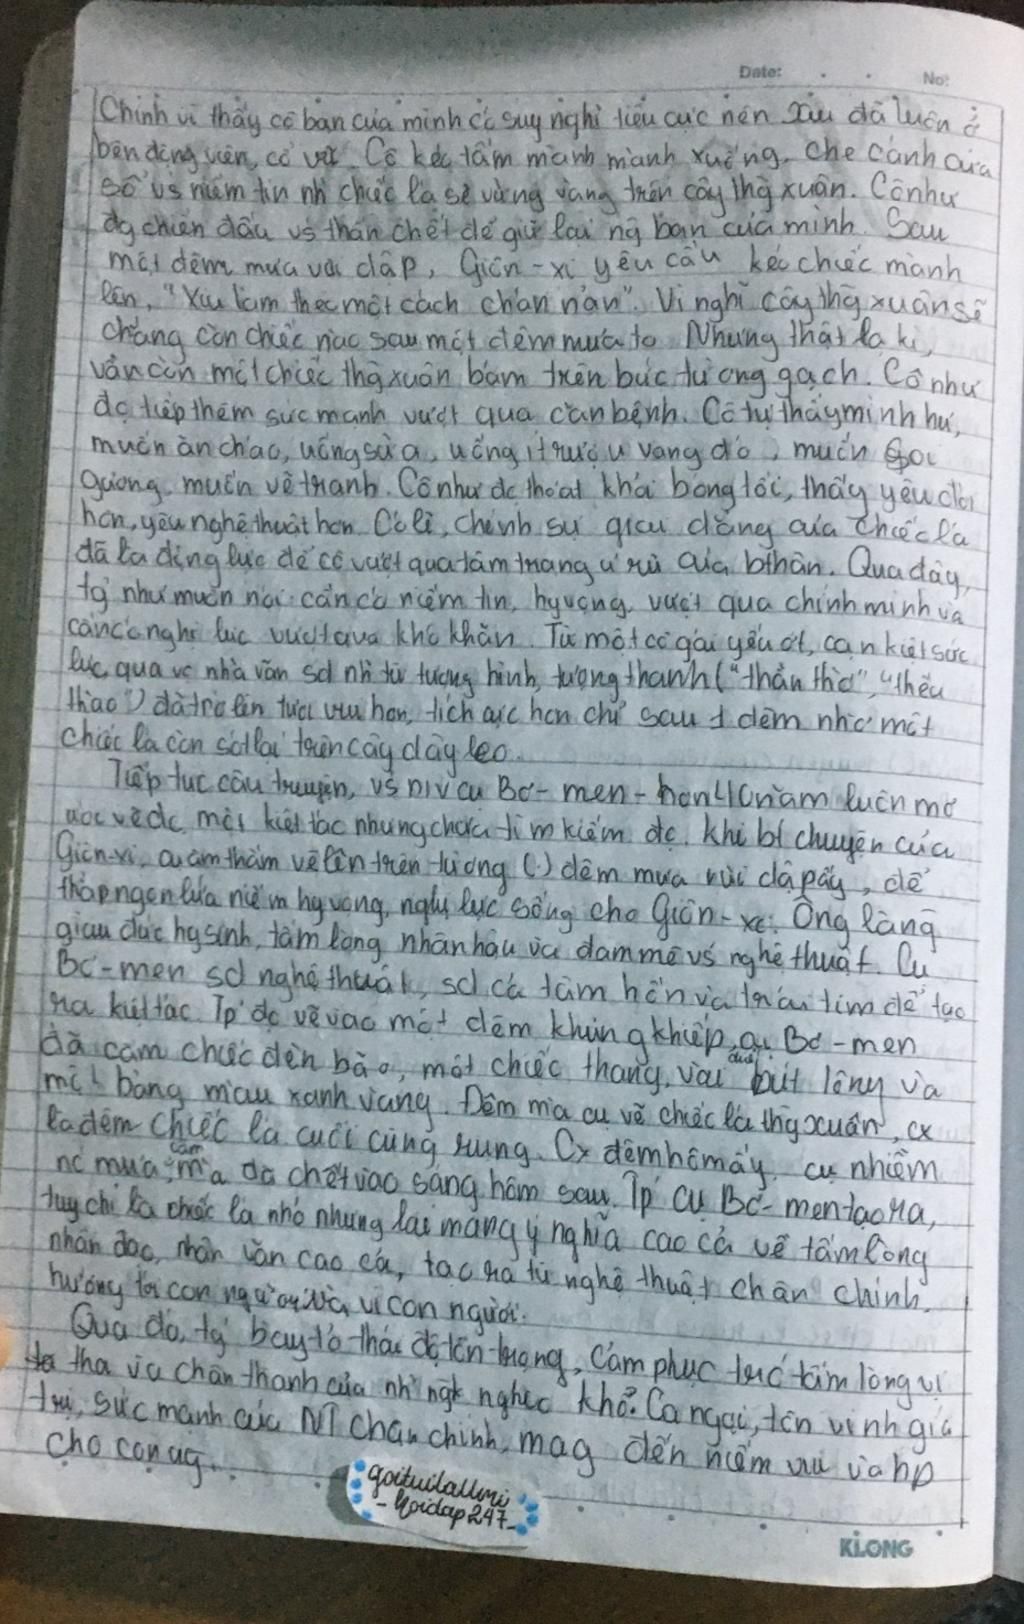 Date: . . No:
Chính vì thấy cô bạn của mình có suy nghĩ tiêu cực nên Xiu đã luôn ở
bên động viên, cổ vũ. Cô kéo tấm mành mành xuống, che cánh cửa
sổ vs niềm tin nh chiếc lá sẽ vững vàng trên cây thg xuân. Cô như
đg chiến đấu vs thần chết để giữ lại ng bạn của mình. Sau
một đêm mưa vùi dập, Giôn-xi yêu cầu kéo chiếc mành
lên, "Xiu làm theo một cách chán nản". Vì nghĩ cây thg xuân sẽ
chẳng còn chiếc nào sau một đêm mưa to. Nhưng thật lạ kì,
vẫn còn một chiếc thg xuân bám trên bức tường gạch. Cô như
đc tiếp thêm sức mạnh vượt qua căn bệnh. Cô tự thấy mình hư,
muốn ăn cháo, uống sữa, uống ít rượu vang đỏ, muốn soi
gương, muốn vẽ tranh. Cô như đc thoát khỏi bóng tối, thấy yêu đời
hơn, yêu nghệ thuật hơn. Có lẽ, chính sự gieo dẳng của chiếc lá
đã là động lực để cô vượt qua tâm trạng ủ rũ của bthân. Qua đây,
tg như muốn nói cần có niềm tin, hy vọng, vượt qua chính mình và
cần có nghị lực vượt qua khó khăn. Từ một cô gái yếu ớt, cạn kiệt sức
lực, qua vc nhà văn sd nh từ tượng hình, tượng thanh ("thẫn thờ", "thều
thào") đã trở lên tươi vui hơn, tích cực hơn chỉ sau 1 đêm nhờ một
chiếc lá còn sót lại trên cây dây leo.
Tiếp tục câu truyện, vs nv cụ Bơ-men-hơn 40 năm luôn mơ
ước vẽ đc một kiệt tác nhưng chưa tìm kiếm đc. Khi bt chuyện của
Giôn-xi, cụ âm thầm vẽ lên trên tường (.) đêm mưa vùi dập ấy, để
thắp ngọn lửa niềm hy vọng, nghị lực sống cho Giôn-xi. Ông là ng
giàu đức hy sinh, tấm lòng nhân hậu và đam mê vs nghệ thuật. Cụ
Bơ-men sd nghệ thuật, sd cả tâm hồn và trái tim để tạo
ra kiệt tác. Tp đc vẽ vào một đêm khủng khiếp, cụ Bơ-men
đã cầm chiếc đèn bão, một chiếc thang, vài bút lông và
một bảng màu xanh vàng. Đêm mà cụ vẽ chiếc lá thg xuân, cx
là đêm chiếc lá cuối cùng rụng. Cx đêm hôm ấy, cụ nhiễm
nc mưa, mà đã chết vào sáng hôm sau. Tp cụ Bơ-men tạo ra,
tuy chỉ là chiếc lá nhỏ nhưng lại mang ý nghĩa cao cả về tấm lòng
nhân đạo, nhân văn cao cả, tạo ra từ nghệ thuật chân chính
hướng tới con người và vì con người.
Qua đó, tg bày tỏ thái độ tôn trọng, cảm phục trước tấm lòng vị
tha và chân thành của nh nghệ nghèo khổ. Ca ngợi, tôn vinh giá
trị, sức mạnh của NT chân chính, mag đến niềm vui và hp
cho con ng...
goituilallmi
- Hoidap247 -
KLONG